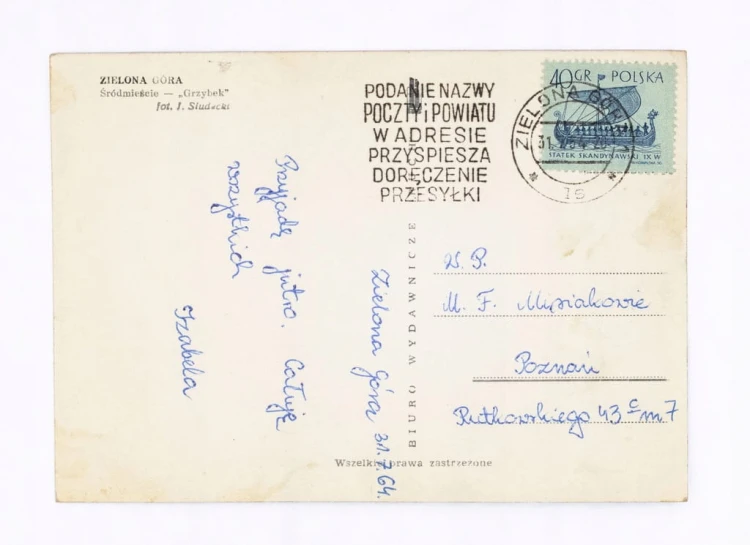 ZIELONA GÓRA
Śródmieście — „Grzybek"
fot. J. Studecki
PODANIE NAZWY
POCZTY i POWIATU
W ADRESIE
PRZYSPIESZA
DORĘCZENIE
PRZESYŁKI
40 GR POLSKA
STATEK SKANDYNAWSKI IX W
ZIELONA GÓRA 1
31.7.64-20
1s
Zielona Góra 31.7.64.
Przyjadę jutro. Całuję
wszystkich
Izabela
BIURO WYDAWNICZE
W. P.
M. F. Misiakowie
Poznań
Rutkowskiego 43 c m 7
Wszelkie prawa zastrzeżone